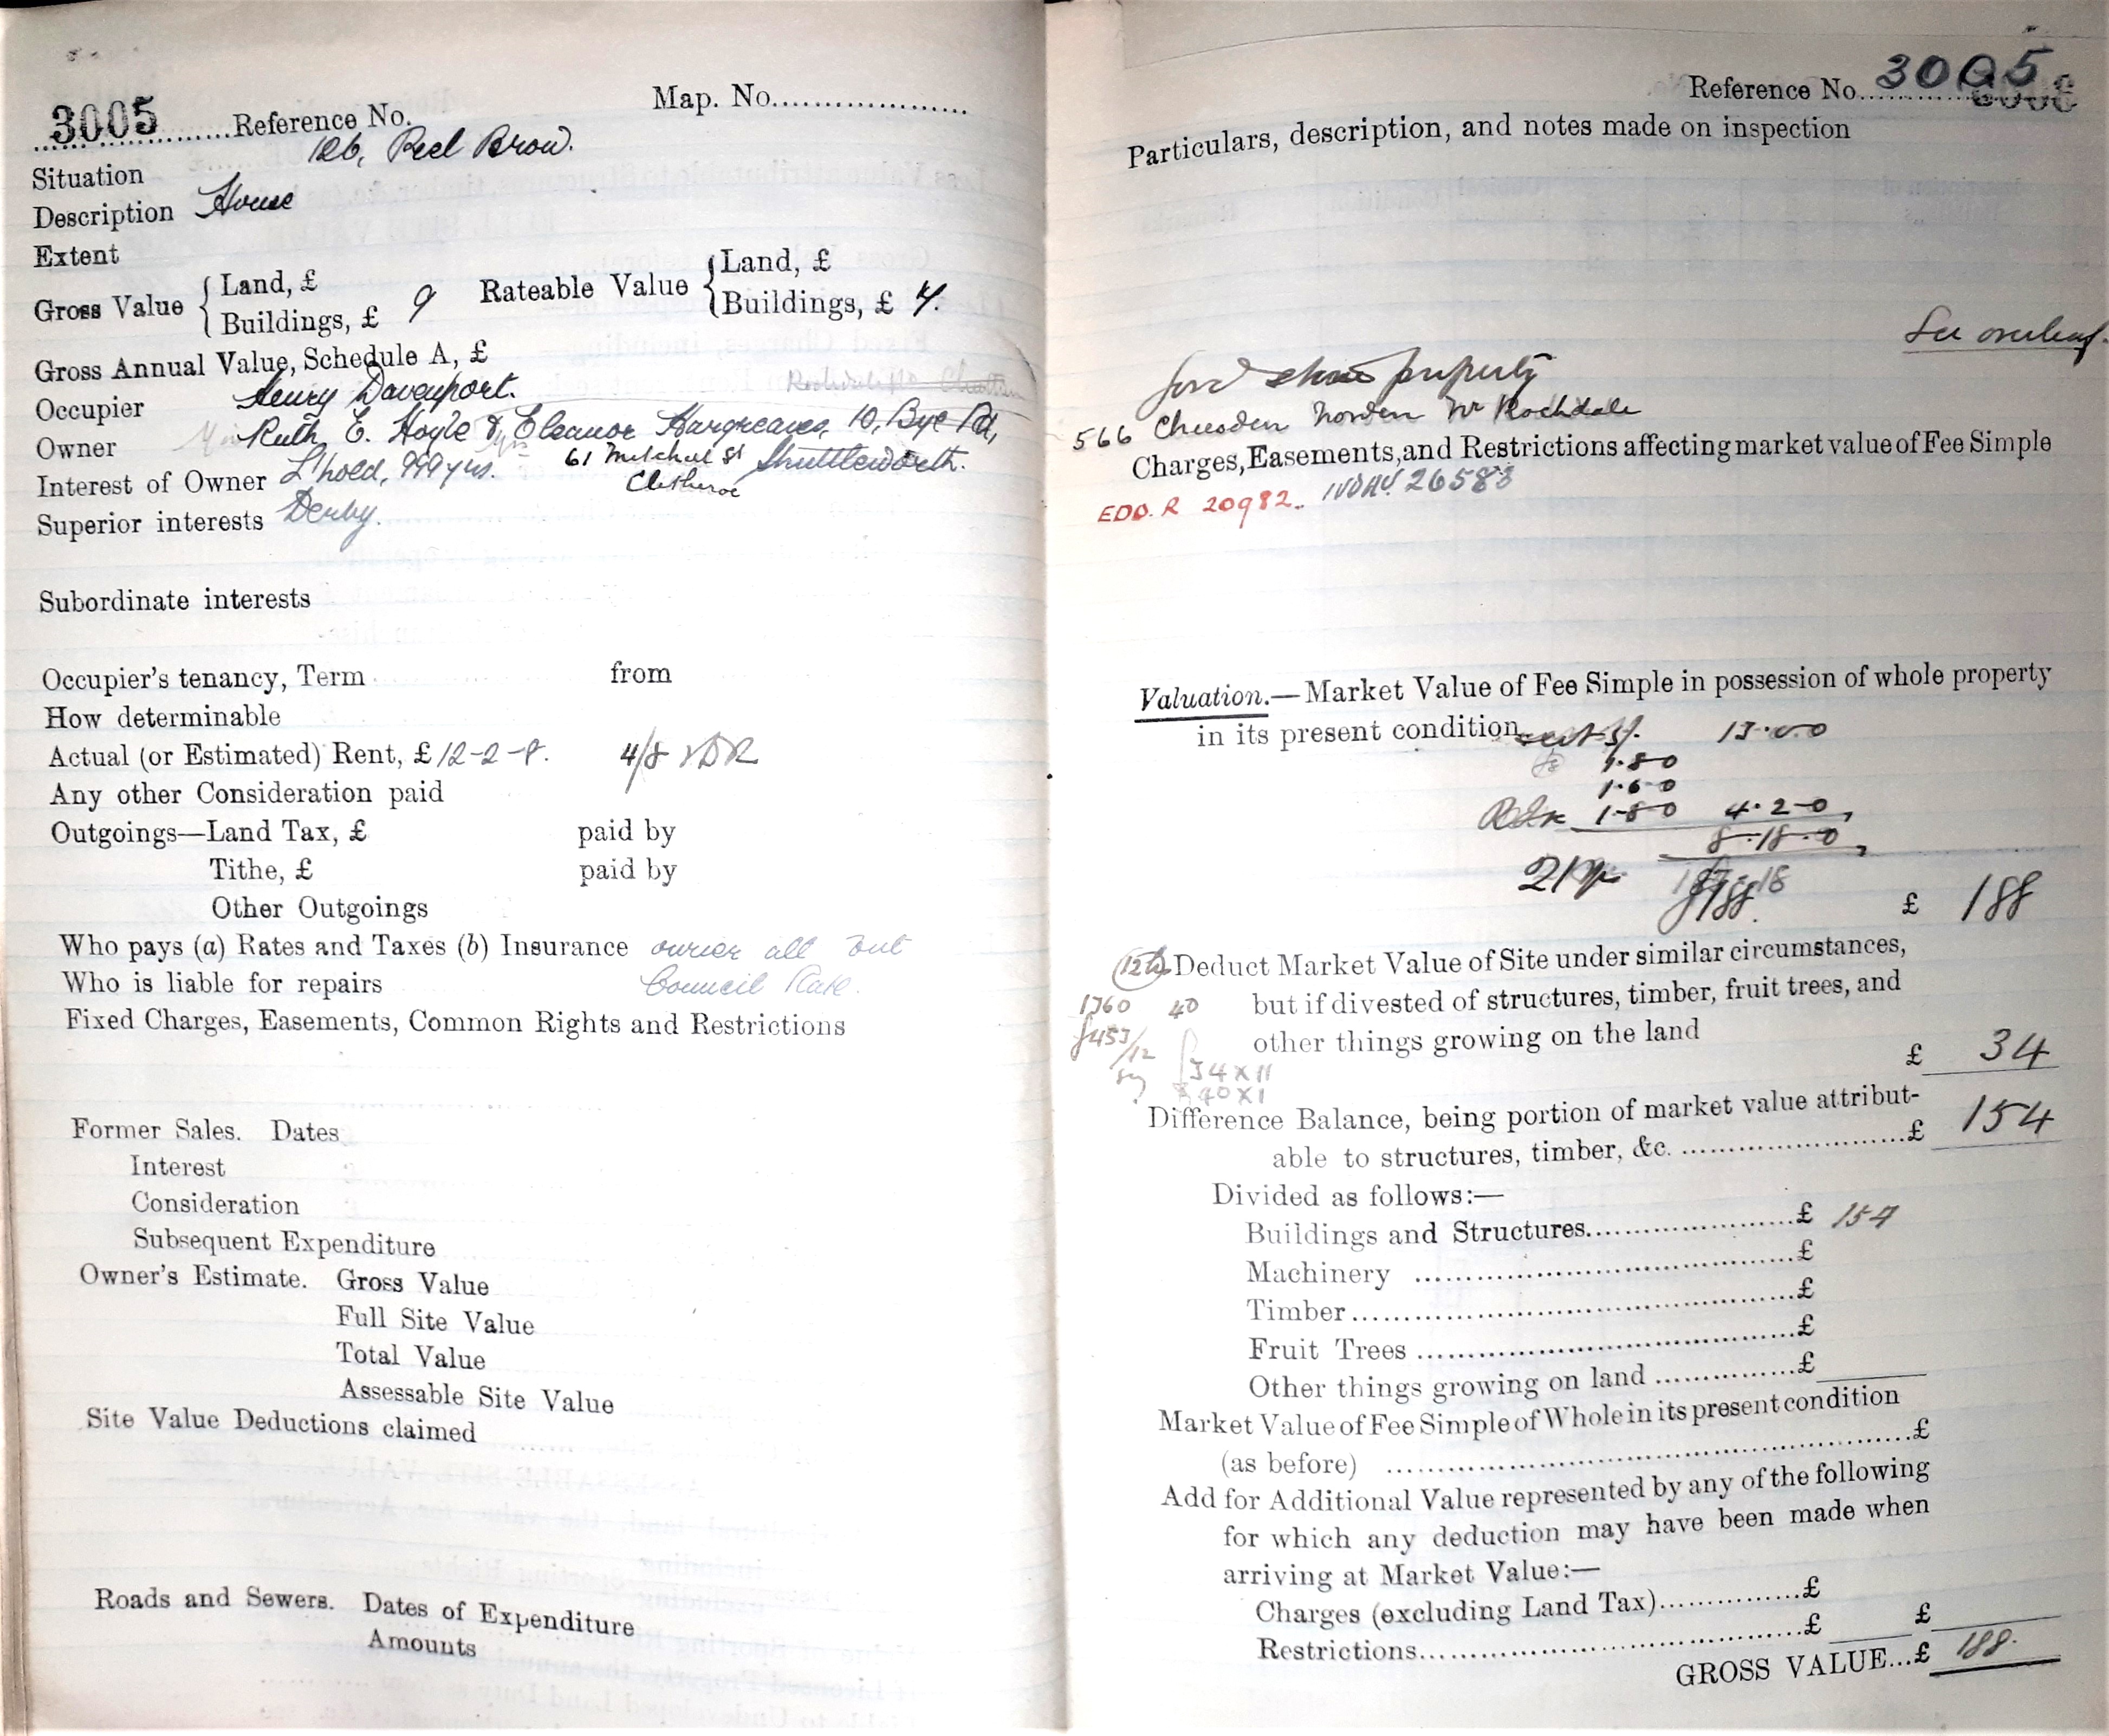 3005 Reference No. Map. No.
Situation 126, Peel Brow.
Description House
Extent
Gross Value { Land, £ Rateable Value { Land, £
Buildings, £ 9 Buildings, £
Gross Annual Value, Schedule A, £
Occupier Henry Davenport.
Owner Ruth E. Hoyle & Eleanor Hargreaves, 10, Bye Rd,
61 Mitchel St Shuttleworth.
Interest of Owner L'hold, 999 yrs.
Clitheroe
Superior interests Derby.
Subordinate interests
Occupier's tenancy, Term from
How determinable
Actual (or Estimated) Rent, £ 12-2-8. 4/8
Any other Consideration paid
Outgoings—Land Tax, £ paid by
Tithe, £ paid by
Other Outgoings
Who pays (a) Rates and Taxes (b) Insurance owner all but
Who is liable for repairs Council Rate.
Fixed Charges, Easements, Common Rights and Restrictions
Former Sales. Dates
Interest
Consideration
Subsequent Expenditure
Owner's Estimate. Gross Value
Full Site Value
Total Value
Assessable Site Value
Site Value Deductions claimed
Roads and Sewers. Dates of Expenditure
Amounts
Reference No. 3005
Particulars, description, and notes made on inspection
See overleaf.
property
566 Cheesden Norden Nr Rochdale
Charges, Easements, and Restrictions affecting market value of Fee Simple
EDD. R 20982. 26583
Valuation.—Market Value of Fee Simple in possession of whole property
in its present condition
1.8.0
1.6.0
1.8.0 4.2.0
8.18.0
£188.
£ 188
Deduct Market Value of Site under similar circumstances,
but if divested of structures, timber, fruit trees, and
1360 40
other things growing on the land
£453/12
£ 34
£34 x 11
£40 x 1
Difference Balance, being portion of market value attribut-
able to structures, timber, &c. £ 154
Divided as follows:—
Buildings and Structures £ 154
Machinery £
Timber £
Fruit Trees £
Other things growing on land £
Market Value of Fee Simple of Whole in its present condition
(as before) £
Add for Additional Value represented by any of the following
for which any deduction may have been made when
arriving at Market Value:—
Charges (excluding Land Tax) £
Restrictions £ £
GROSS VALUE...£ 188.